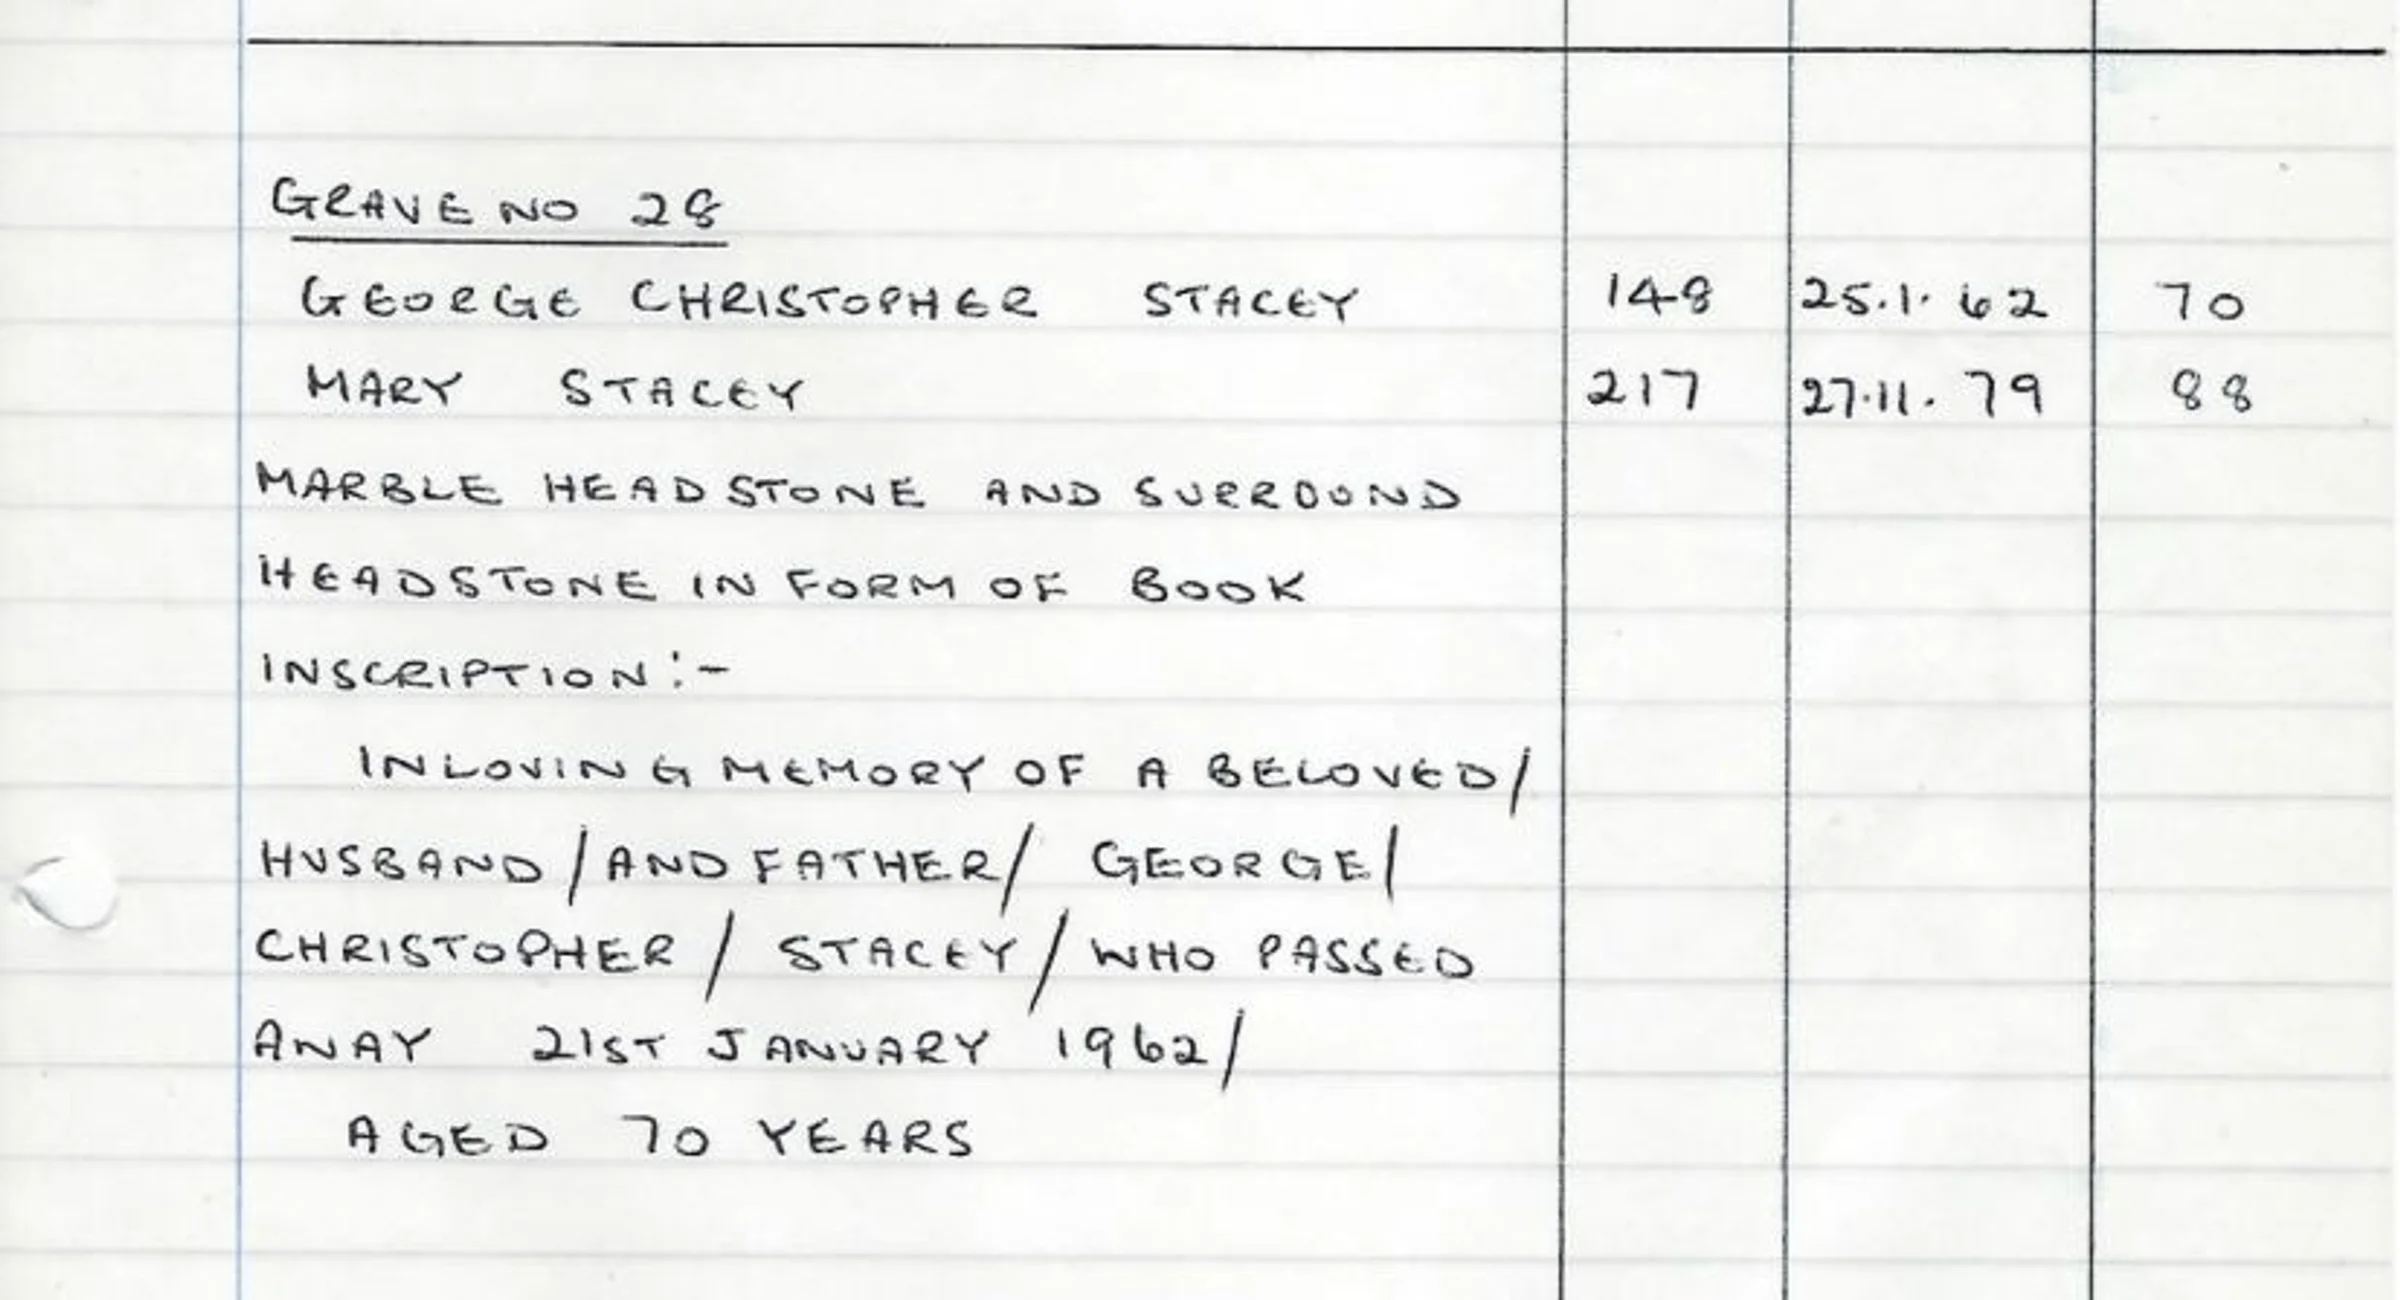 GRAVE NO 28
GEORGE CHRISTOPHER STACEY 148 25.1.62 70
MARY STACEY 217 27.11.79 88
MARBLE HEADSTONE AND SURROUND
HEADSTONE IN FORM OF BOOK
INSCRIPTION:-
IN LOVING MEMORY OF A BELOVED/
HUSBAND/AND FATHER/ GEORGE/
CHRISTOPHER/ STACEY/WHO PASSED
AWAY 21ST JANUARY 1962/
AGED 70 YEARS